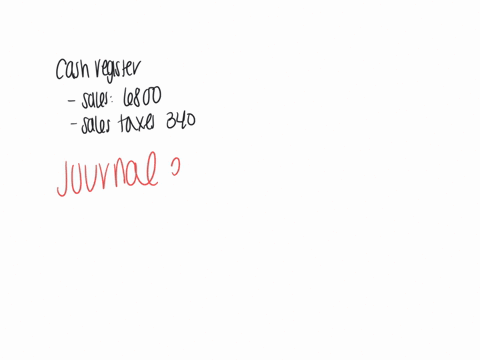 Cash register
- sales: 6800
- sales taxes 340
Journal ?